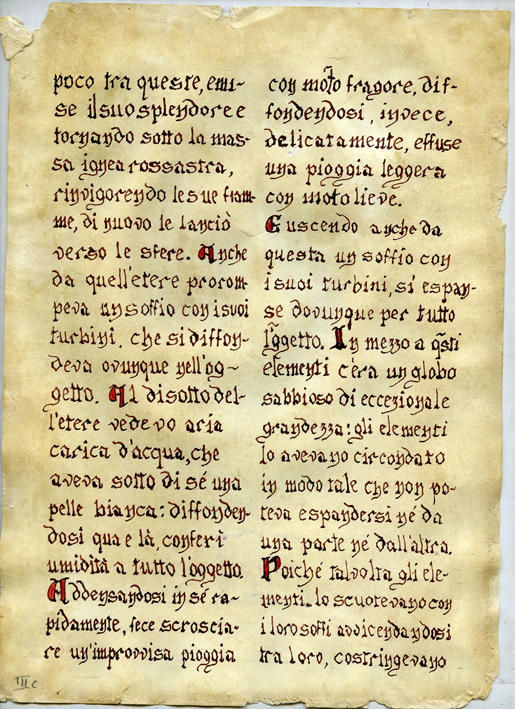 poco tra queste, emi-
se il suo splendore e
tornando sotto la mas-
sa ignea rossastra,
rinvigorendo le sue fiam-
me, di nuovo le lanciò
verso le sfere. Anche
da quell'etere prorom-
peva un soffio con i suoi
turbini, che si diffon-
deva ovunque nell'og-
getto. Al disotto del-
l'etere vedevo aria
carica d'acqua, che
aveva sotto di sé una
pelle bianca: diffonden-
dosi qua e là, conferì
umidità a tutto l'oggetto.
Addensandosi in sé ra-
pidamente, fece scroscia-
re un'improvvisa pioggia
con mo̅to fragore, dif-
fondendosi, invece,
delicatamente, effuse
una pioggia leggera
con moto lieve.
E uscendo anche da
questa un soffio con
i suoi turbini, si espan-
se dovunque per tutto
l'o̅ggetto. In mezzo a q̅sti
elementi c'era un globo
sabbioso di eccezionale
grandezza: gli elementi
lo avevano circondato
in modo tale che non po-
teva espandersi né da
una parte né dall'altra.
Poiché talvolta gli ele-
menti, lo scuotevano con
i loro soffi avvicendandosi
tra loro, costringevano
III c